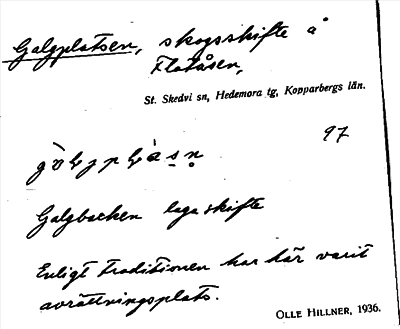 Galgplatsen, skogsskifte å
Flatåsen,
St. Skedvi sn, Hedemora tg, Kopparbergs län.
97
Galgbacken laga skifte
Enligt traditionen har här varit
avrättningsplats.
OLLE HILLNER, 1936.